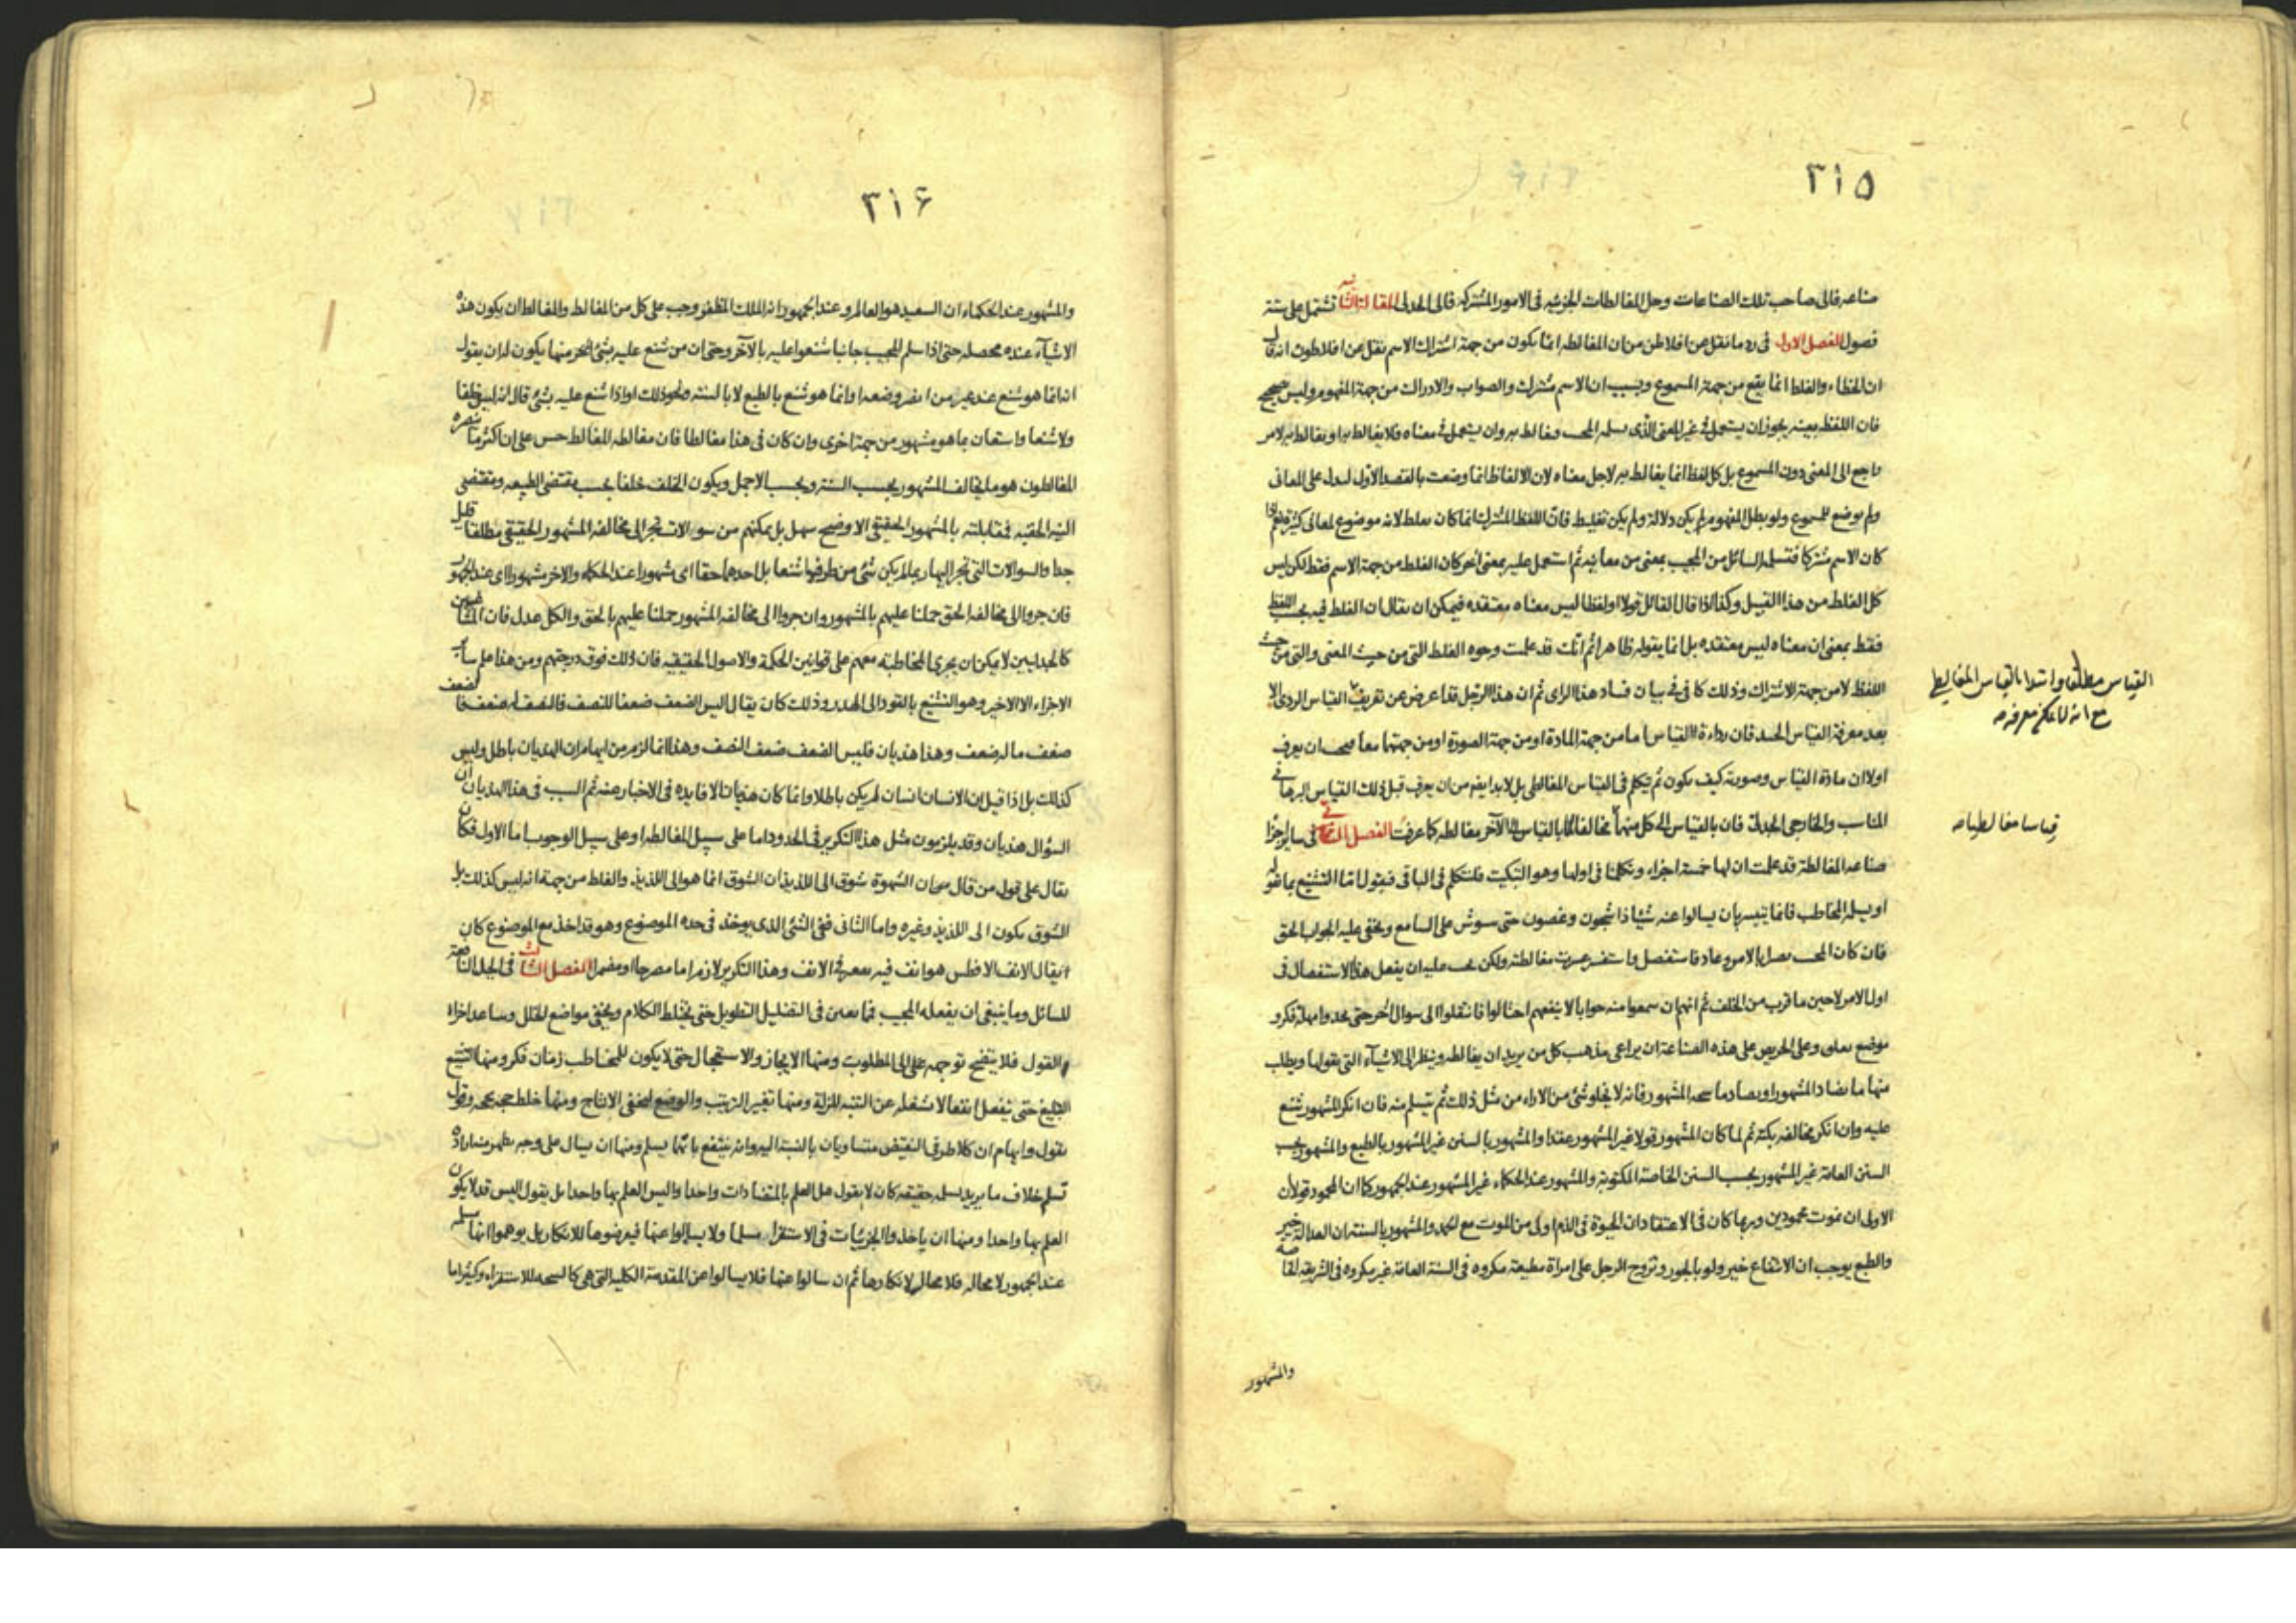 ٣١٥
صناعه فالى صاحب تلك الصناعات وحل المغالطات الجزئيه فى الامور المشتركه فالى الجدلى المقالة الثانيه تشتمل على ستة
فصول الفصل الاول فى رد ما نقل عن افلاطن من ان المغالطه انما يكون من جهة اشتراك الاسم نقل عن افلاطون انه قال
ان الخطاء والغلط انما يقع من جهة المسموع وبسبب ان الاسم مشترك والصواب والادراك من جهة المفهوم وليس بصحيح
فان اللفظ بعينه يجوز ان يستعمل فى غير المعنى الذى يسلمه المجيب فغالط به وان يستعمل فى معناه فلا يغالط به او يغالط به لامر
راجع الى المعنى دون المسموع بل كل لفظ انما يغالط به لاجل معناه لان الالفاظ انما وضعت بالقصد الاول لتدل على المعانى
ولم يوضع للمسموع ولو بطل المفهوم لم يكن دلالة ولم يكن تغليط فان اللفظ المشترك انما كان يغلط لانه موضوع لمعانى كثيرة نعم اذا
كان الاسم مشتركا فتسلمه السائل من المجيب بمعنى من معانيه ثم استعمل عليه بمعنى آخر كان الغلط من جهة الاسم فقط لكن ليس
كل الغلط من هذا القبيل وكذا اذا قال القائل قولا او لفظا ليس معناه معتقده فيمكن ان يقال ان الغلط فيه بحسب اللفظ
فقط بمعنى ان معناه ليس معتقده بل انما يقوله ظاهرا ثم انك قد علمت وجوه الغلط التى من حيث المعنى والتى من حيث
اللفظ لا من جهة الاشتراك وذلك كافى فى بيان فساد هذا الراى ثم ان هذا الرجل قد اعرض عن تعريف القياس الردى الا
بعد معرفة القياس الجيد فان رداءة القياس اما من جهة المادة او من جهة الصورة او من جهتهما معا فيجب ان يعرف
اولا ان مادة القياس وصورته كيف يكون ثم يتكلم فى القياس المغالطى بل لا بد ايضا من ان يعرف قبل ذلك القياس البرهانى
المناسب والخارجى الجدلى فان القياس الى كل منهما مخالفا بالقياس الى الآخر مغالطه كما عرفت الفصل الثانى فى ساير اجزا
صناعه المغالطة قد علمت ان لها خمسة اجزاء وتكلمنا فى اولها وهو التبكيت فلنتكلم فى الباقى فنقول اما التشنيع بما يقوله
او يسلمه المخاطب فانما يتيسر بان يسالوا عنه شيئا ذا شجون وغصون حتى يشوش على السامع ويخفى عليه الجواب الحق
فان كان المجيب بصيرا بالامر وعادفا ستفصل واستفسر عرف مغالطته ولكن يجب عليه ان يفعل هذا الاستفصال فى
اول الامر لا حين ما قرب من الخلف ثم انهم ان سمعوا منه جوابا لا ينفعهم احتالوا فانتقلوا الى سوال آخر حتى يجدوا مهلة فكر و
موضع وعلى الحريص على هذه الصناعة ان يراعى مذهب كل من يريد ان يغالطه وينظر الى الاشياء التى يقولها ويطلب
منها ما يضاد المشهور او يصادم المشهور فانه لا يخلو شئ من الاراء من مثل ذلك ثم يتسلم منه فان انكر المشهور شنع
عليه وان انكر مخالفه بكته ثم لما كان المشهور قولا غير المشهور عقدا والمشهور بالسنن غير المشهور بالطبع والمشهور بحسب
السنن العامة غير المشهور بحسب السنن الخاصة المكتوبة والمشهور عند الحكماء غير المشهور عند الجمهور كما ان المحمود قولا ان
الاولى ان نموت محمودين وربما كان فى الاعتقاد ان الحيوة فى الذم اولى من الموت مع الحمد والمشهور بالسنة ان العدالة خير
والطبع يوجب ان الانتفاع خير ولو بالجور وتزوج الرجل على امراة مطيعة مكروه فى السنة العامة غير مكروه فى الشريعه الخاصه
والمشهور
القياس مطلقا وابتدا بالقياس المغالطى
مع انه لا يمكن معرفته صه
قياسا مغالطيا صه
٣١۶
والمشهور عند الحكماء ان السعيد هو العالم وعند الجمهور انه الملك المظفر وجب على كل من المغالط والمغالط ان يكون هذه
الاشياء عنده محصله حتى اذا سلم المجيب جانبا شنعوا عليه بالآخر وحتى ان من شنع عليه بشئ آخر منها يكون له ان يقول
انه انما هو شنع عند غير من وضعه او انما هو شنع بالطبع لا بالسنه ونحو ذلك او اذا شنع عليه بشئ قال انه ليس خلفا
ولا شنعا واستعان بما هو مشهور من جهة اخرى وان كان فى هذا مغالطا فان مغالطه المغالط حسن على ان اكثر ما ينصره
المغالطون هو ما يخالف المشهور بحسب السنة وبحسب الاجمل ويكون الخلف خلفا بحسب مقتضى الطبيعه ومقتضى
النيه الحقيه فمقابلته بالمشهور الحقيقى الاوضح سهل بل يمكنهم من سوالات تجر الى مخالفه المشهور الحقيقى مطلقا قليل
جدا والسوالات التى تجر اليها ربما لم يكن شئ من طرفيها شنعا بل احدهما حقا اى مشهورا عند الحكماء والاخر مشهورا اى عند الجمهور
فان جروا الى مخالفه الحق حملنا عليهم بالمشهور وان جروا الى مخالفه المشهور حملنا عليهم بالحق والكل عدل فان المشاغبين
كالجدليين لا يمكن ان يجرى المخاطبة معهم على قوانين الحكمة والاصول الحقيقيه فان ذلك فوق درجتهم ومن هذا علم ساير
الاجزاء الا الاخير وهو التشنيع بالقود الى الهذر وذلك كان يقال اليس الضعف ضعفا للنصف فالنصف له ضعف فالضعف
ضعف ما له ضعف وهذا هذيان فليس الضعف ضعف النصف وهذا انما لزم من ايهام ان الهذيان باطل وليس
كذلك بل اذا قيل ان الانسان انسان لم يكن باطلا وانما كان هذيانا لا فايده فى الاخبار عنه ثم السبب فى هذا الهذيان ان
السؤال هذيان وقد يلزمون مثل هذا التكرير فى الحدود اما على سبيل المغالطه او على سبيل الوجوب اما الاول فكان
يقال على قول من قال ان الشهوة شوق الى اللذيذ ان الشوق انما هو الى اللذيذ والغلط من جهة انه ليس كذلك بل
الشوق يكون الى اللذيذ وغيره واما الثانى ففى الشئ الذى يوخذ فى حده الموضوع وهو قد اخذ مع الموضوع كان
يقال الانف الافطس هو انف فيه تقعير فى الانف وهذا التكرير لازم اما مصرحا او مضمرا الفصل الثالث فى الحيل النافعة
للسائل وما ينبغى ان يفعله المجيب فما يعين فى التضليل التطويل حتى يختلط الكلام ويخفى مواضع الخلل وساعد اجزاء
القول فلا يتضح توجهه على الى المطلوب ومنها الايجاز والاستعجال حتى لا يكون للمخاطب زمان فكر ومنها التشنيع
البليغ حتى ينفعل انفعالا شغله عن التنبه للزلة ومنها تغيير الترتيب والوضع لتخفى الانتاج ومنها خلط حجه بحجه وقول
بقول وايهام ان كلا طرفى النقيض متساويان بالنسبة اليه وانه ينتفع بايهما يسلم ومنها ان يسال على وجه يظهر منه اراده
تسلم خلاف ما يريد تسلمه حقيقه كان لا يقول هل العلم بالمتضادات واحد او اليس العلم بها واحدا بل يقول اليس قد لا يكون
العلم بها واحدا ومنها ان ياخذوا الجزئيات فى الاستقراء مسلما ولا يسالوا عنها فيعرضوها للانكار بل يوهموا انها مسلمه
عند الجمهور لا محاله فلا مجال لانكارها ثم ان سالوا عنها فلا يسالوا عن المقدمة الكلية التى هى كالنتيجه للاستقراء وكثيرا ما